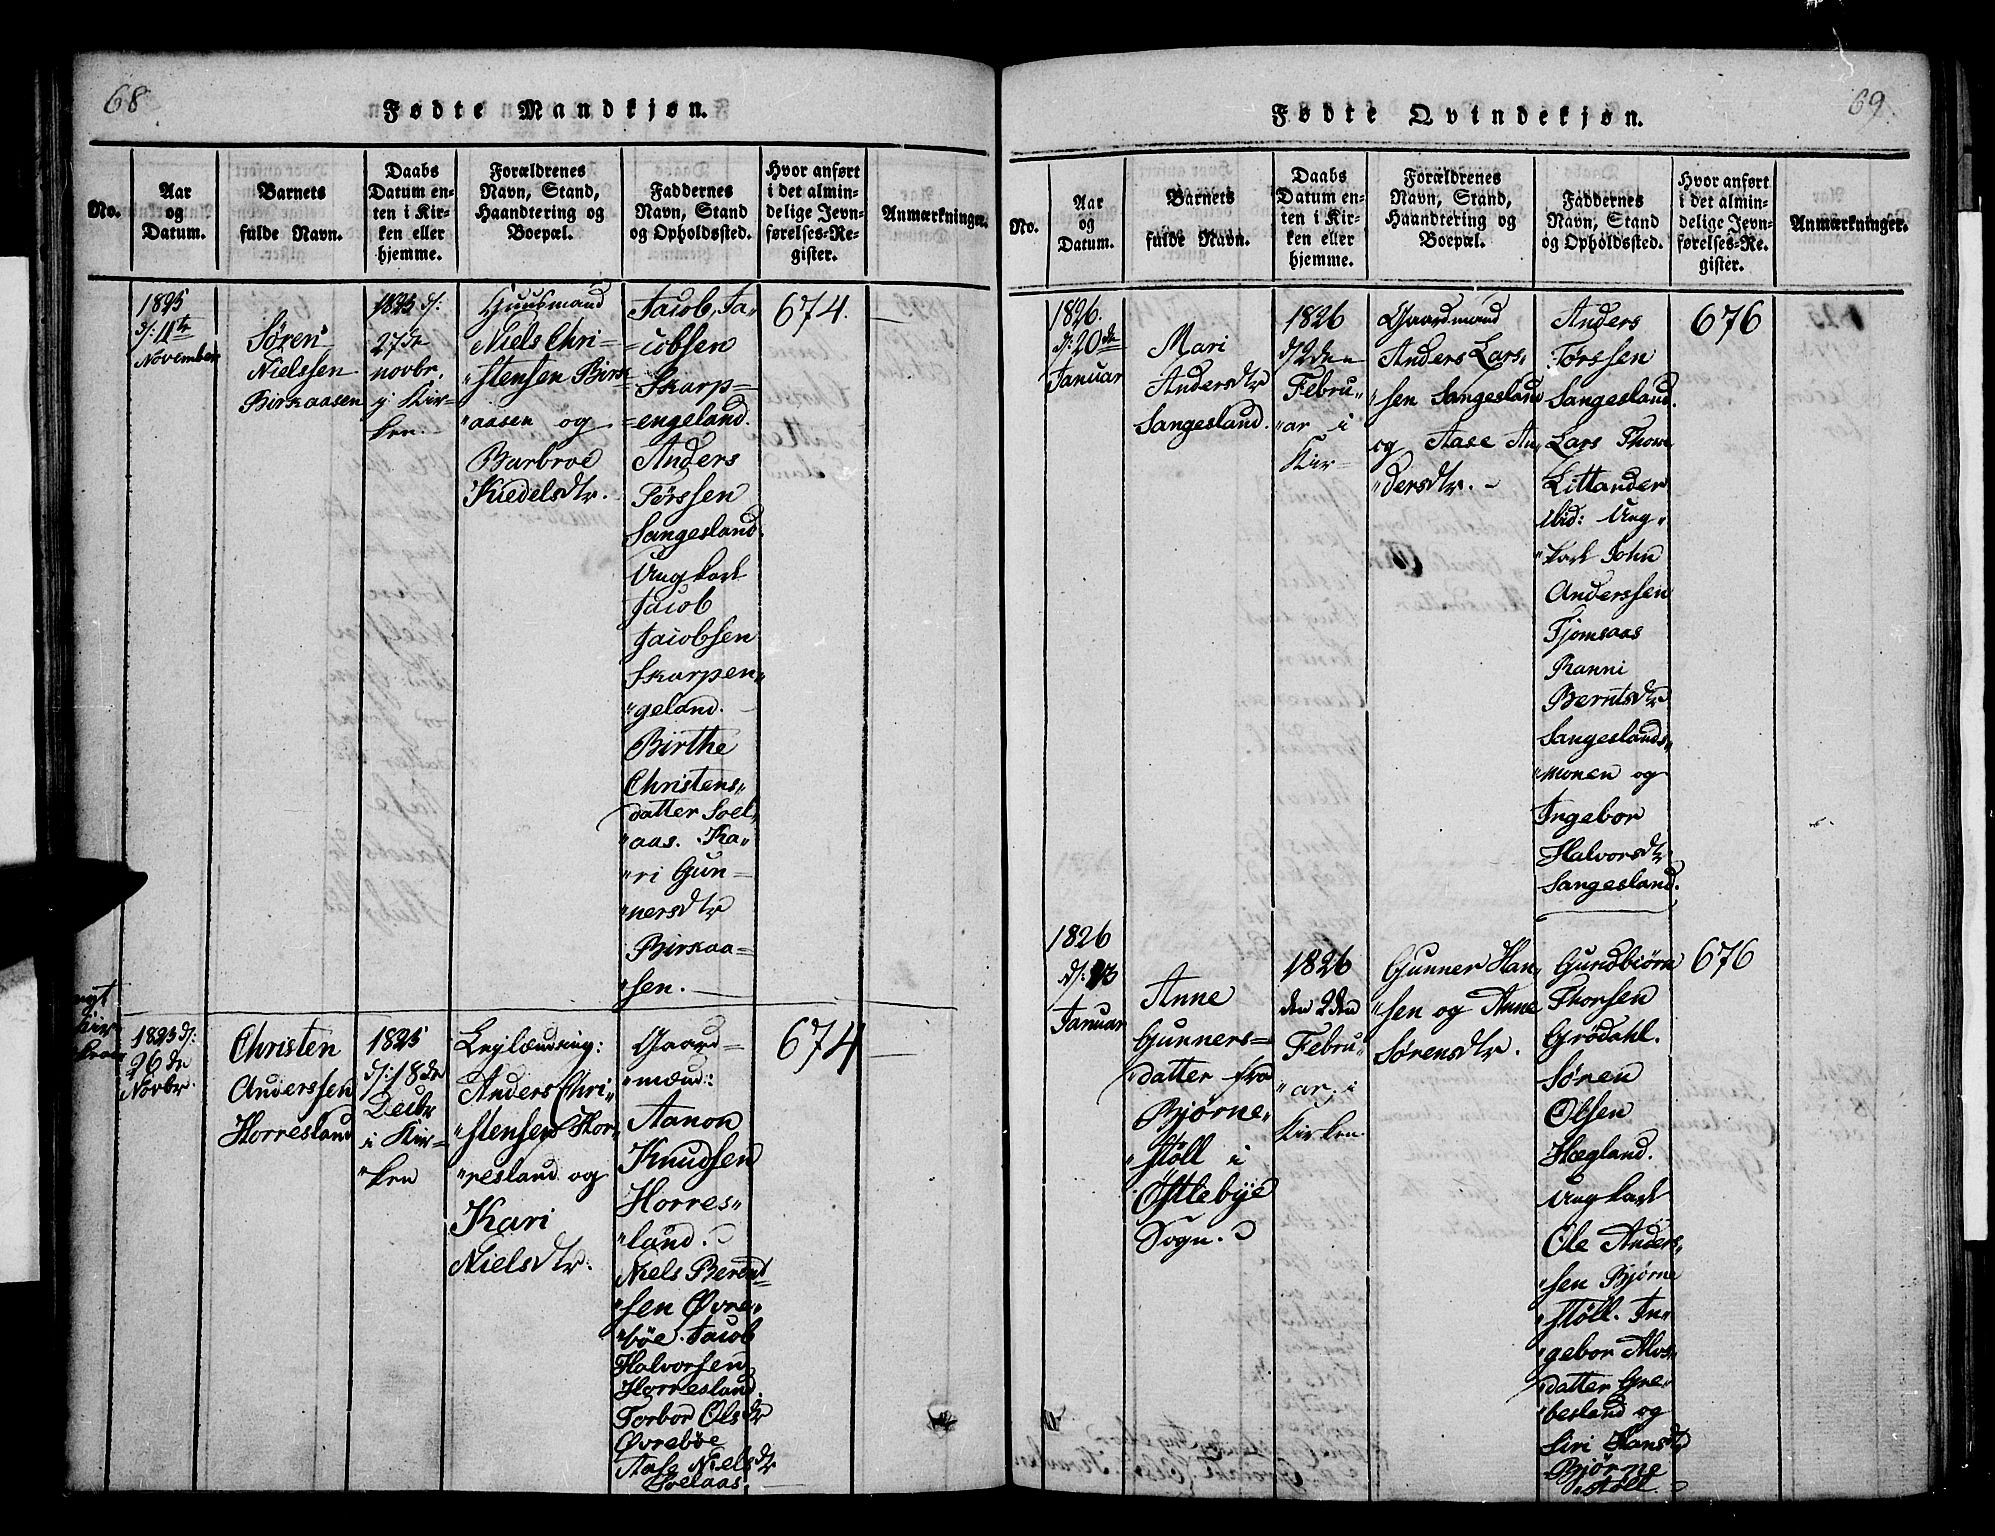 68
Fødte Mandkjøn.
No.
Aar
og
Datum.
Barnets
fulde Navn.
Daabs
Datum en-
ten i Kir-
ken eller
hjemme.
Forældrenes
Navn, Stand,
Haandtering og
Boepæl.
Faddernes
Navn, Stand
og Opholdssted.
Hvor anført
i det almin-
delige Jevn-
førelses-Re-
gister.
Anmærkninger.
1825
d: 11te
November
Søren
Nielssen
Birkaasen
1825 d:
27de
novbr.
i Kir-
ken.
Huusmand
Niels Chri-
"stensen Birk
"aasen og
Barbroe
Kiedelsdtr.
Jacob Ja-
=cobsen
Skarp=
=engeland.
Anders
Torssen
Sangesland.
Ungkarl
Jacob
Jacobsen
Skarpen"
"geland.
Birthe
Christens"
datter Soel"
"aas. Ka-
"ri Gun-
"nersdtr
Birkaa=
"sen.
674.
1825 d:
26de
Novbr.
Christen
Anderssen
Horresland
1825
d: 18de
Decbr
i Kir-
"ken
Lejlænding:
Anders Chri-
"stensen Hor-
"resland og
Kari
Nielsdtr.
Gaard=
"mænd:
Aanon
Knudsen
Horres"
"land.
Niels Berend
"sen Øvre"
"bøe. Jacob
Halvorsen
Horresland.
Torbor Olsdr
Øvrebøe
Aase Nielsdr
Soelaas.
674
69.
Fødte Qvindekjøn.
No.
Aar
og
Datum.
Barnets
fulde Navn.
Daabs
Datum en-
ten i Kir-
ken eller
hjemme.
Forældrenes
Navn, Stand,
Haandtering og
Boepæl.
Faddernes
Navn, Stand
og Opholdssted.
Hvor anført
i det almin-
delige Jevn-
førelses-Re-
gister.
Anmærkninger.
1826.
d: 20de
Januar
Mari
Andersdtr
Sangesland.
1826
d 2den
Febru"
"ar i
Kir-
Gaardmand
Anders Lars"
"sen Sangesland
og Aase An"
"dersdtr.
Anders
Torssen
Sangesland.
Lars Thore
Littander
ibid: Ung"
"karl John
Anderssen
Tjomsaas
Ranni
Berntsdtr
Sangeslands"
"monen og
Ingebor
Halvorsdtr
Sangesland.
676
1826
d: 23
Januar
Anne
Gunners=
"datter fra
Bjørne"
"støll i
Østebye
Sogn.
1826
den 2den
Febru"
"ar i
Kirken
Gunner Han"
"sen og Anne
Sørensdtr.
Gundbiørn
Thorsen
Grødahl.
Søren
Olsen
Hægland.
Ungkarl
Ole Anders"
"sen Bjørne
"støll. In"
"gebor Alvs"
"datter Gre"
"besland og
Siri Hansdtr
Bjørne
"støll.
676